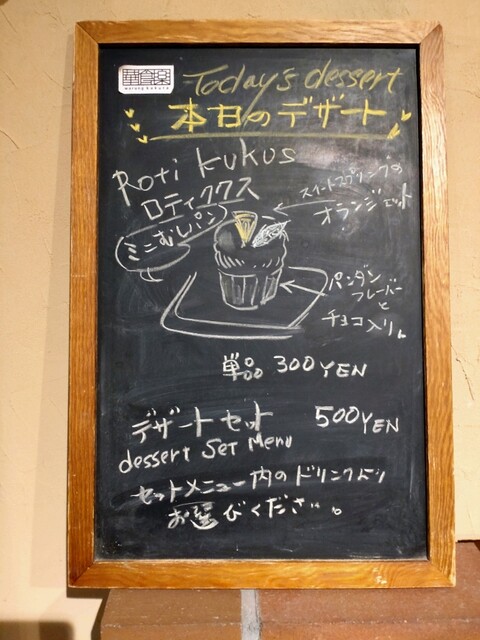 華食楽
warung kakura
Today's dessert
本日のデザート
Roti kukus
ロティククス
ミニむしパン
スイートスプリングの
オランジェット
パンダン
フレーバー
と
チョコ入り。
単品 300YEN
デザートセット 500YEN
dessert Set Menu
セットメニュー内のドリンクより
お選びください。